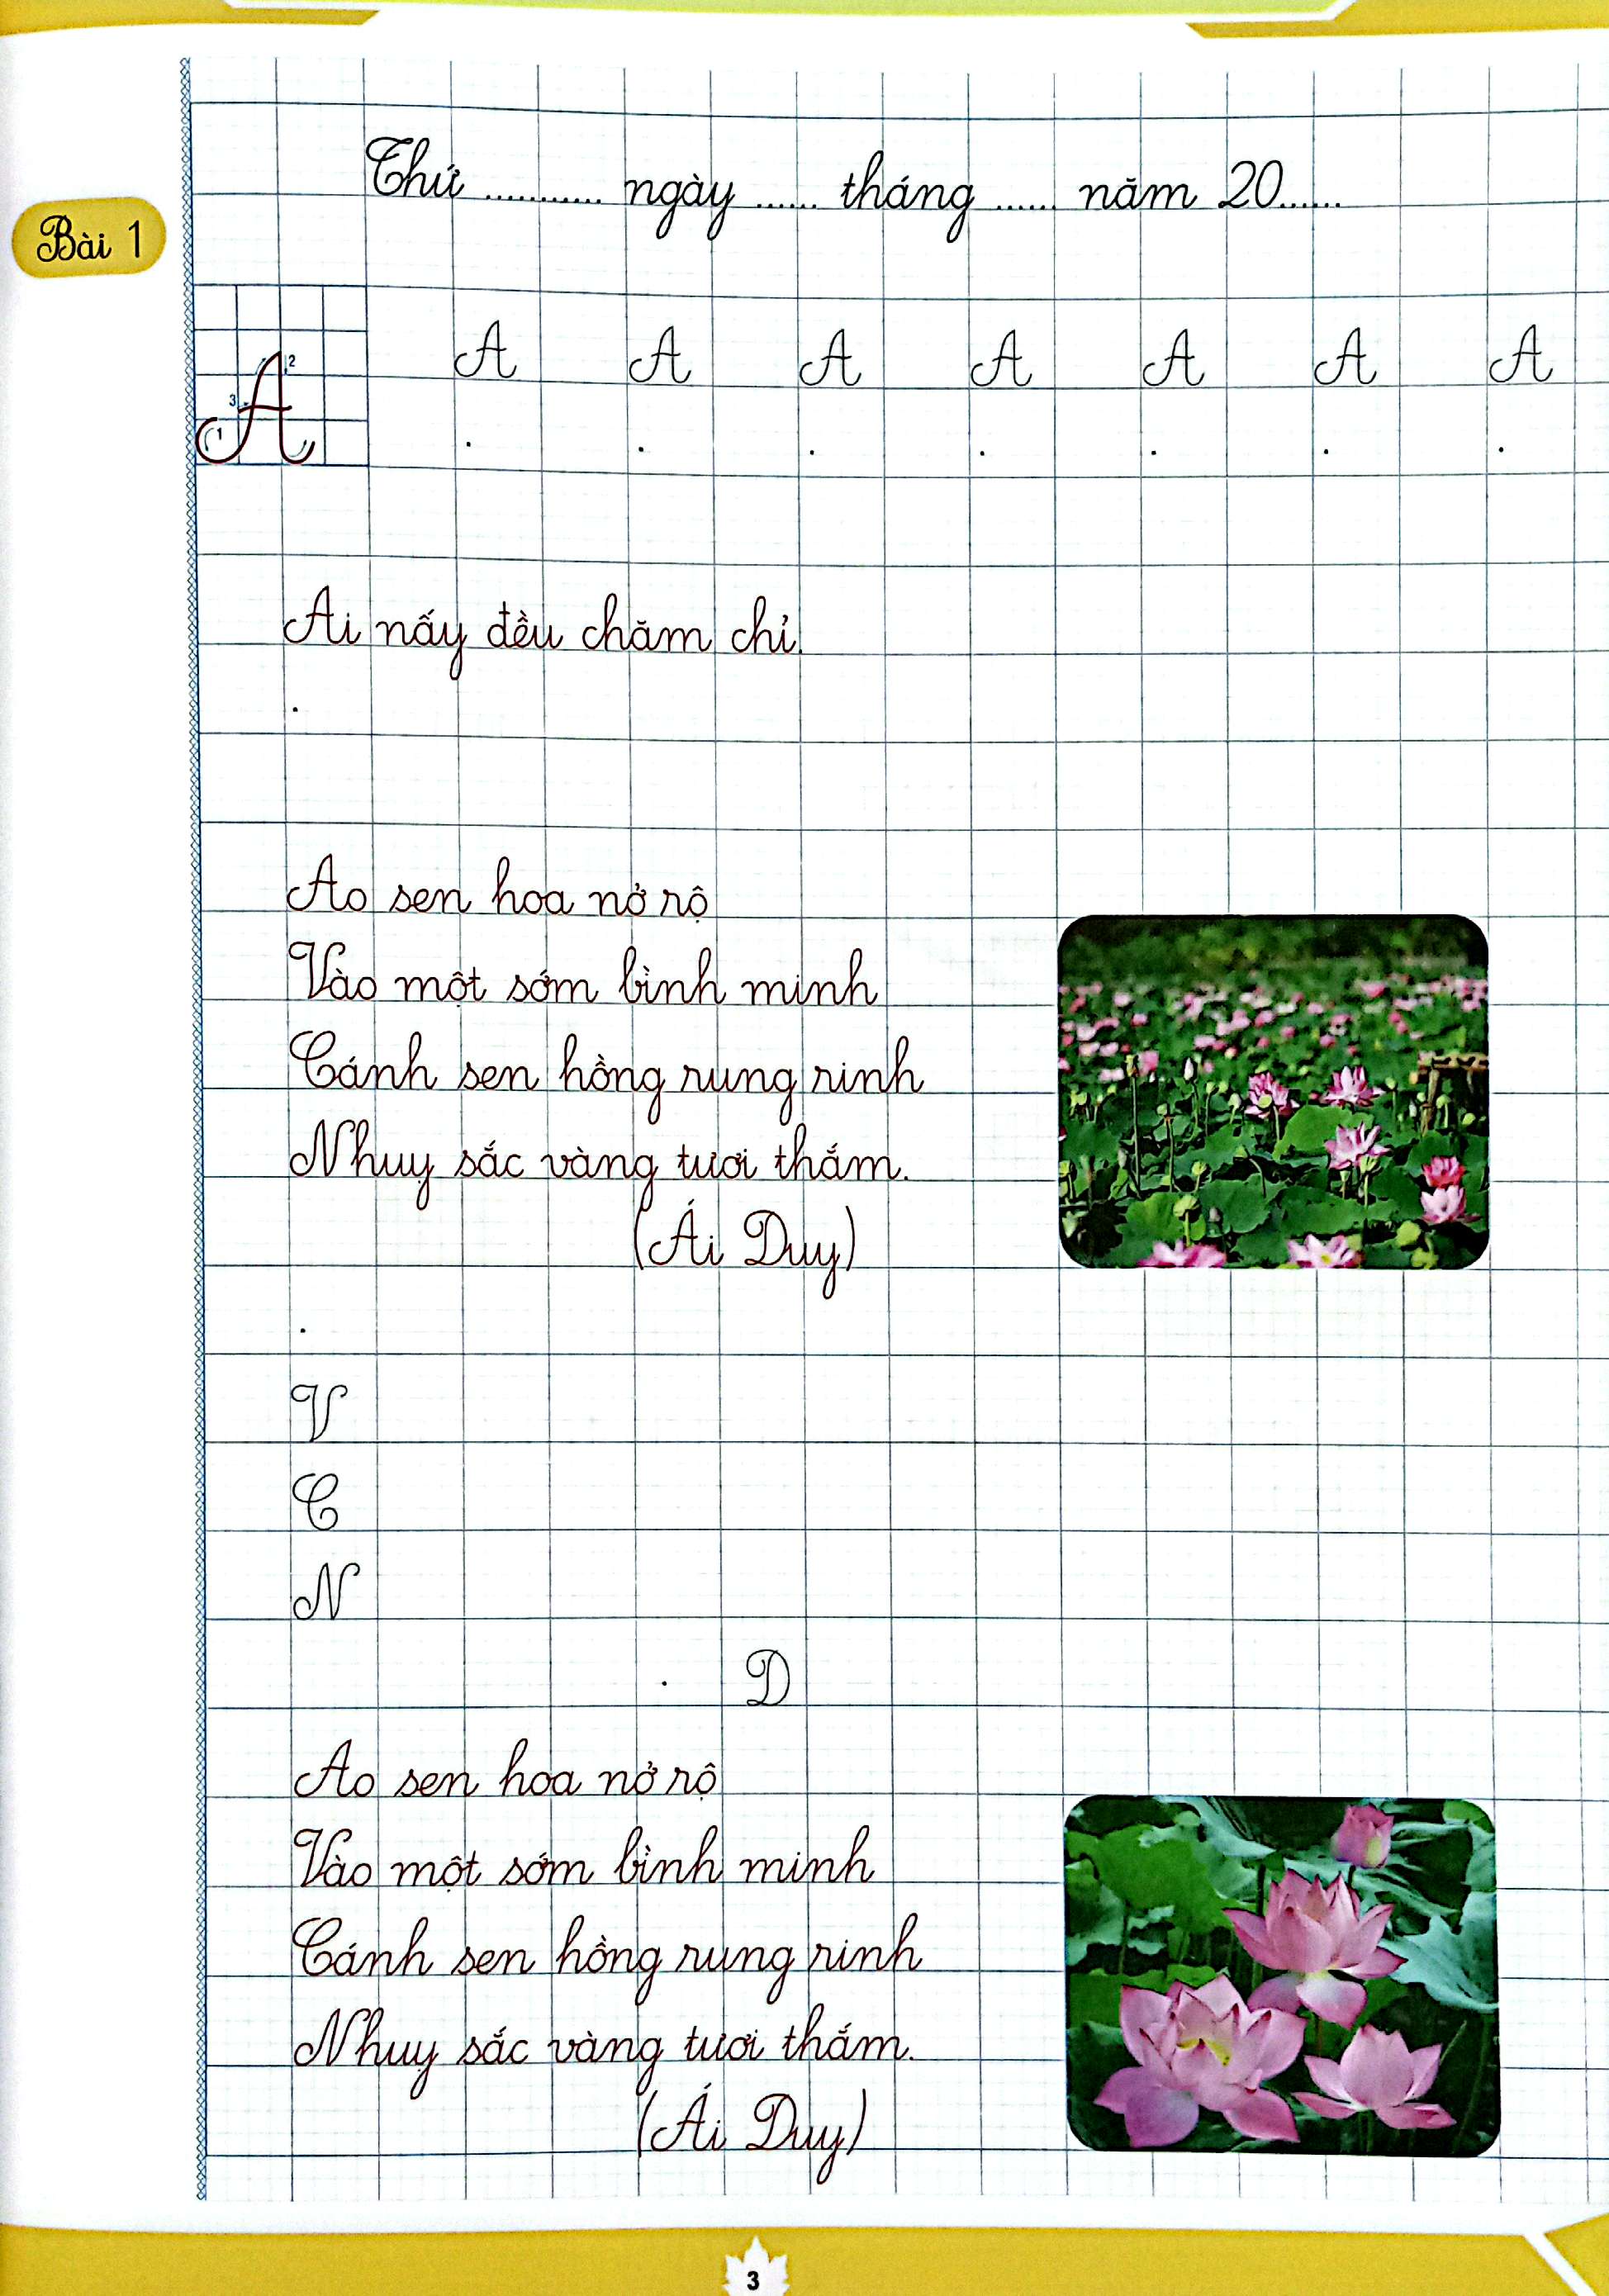 Thứ ............ ngày ...... tháng ...... năm 20......
Bài 1
A A A A A A A A
2
3
1
. . . . . . .
Ai nấy đều chăm chỉ.
.
Ao sen hoa nở rộ
Vào một sớm bình minh
Cánh sen hồng rung rinh
Nhuỵ sắc vàng tươi thắm.
(Ái Duy)
.
V
C
N
. D
Ao sen hoa nở rộ
Vào một sớm bình minh
Cánh sen hồng rung rinh
Nhuỵ sắc vàng tươi thắm.
(Ái Duy)
3